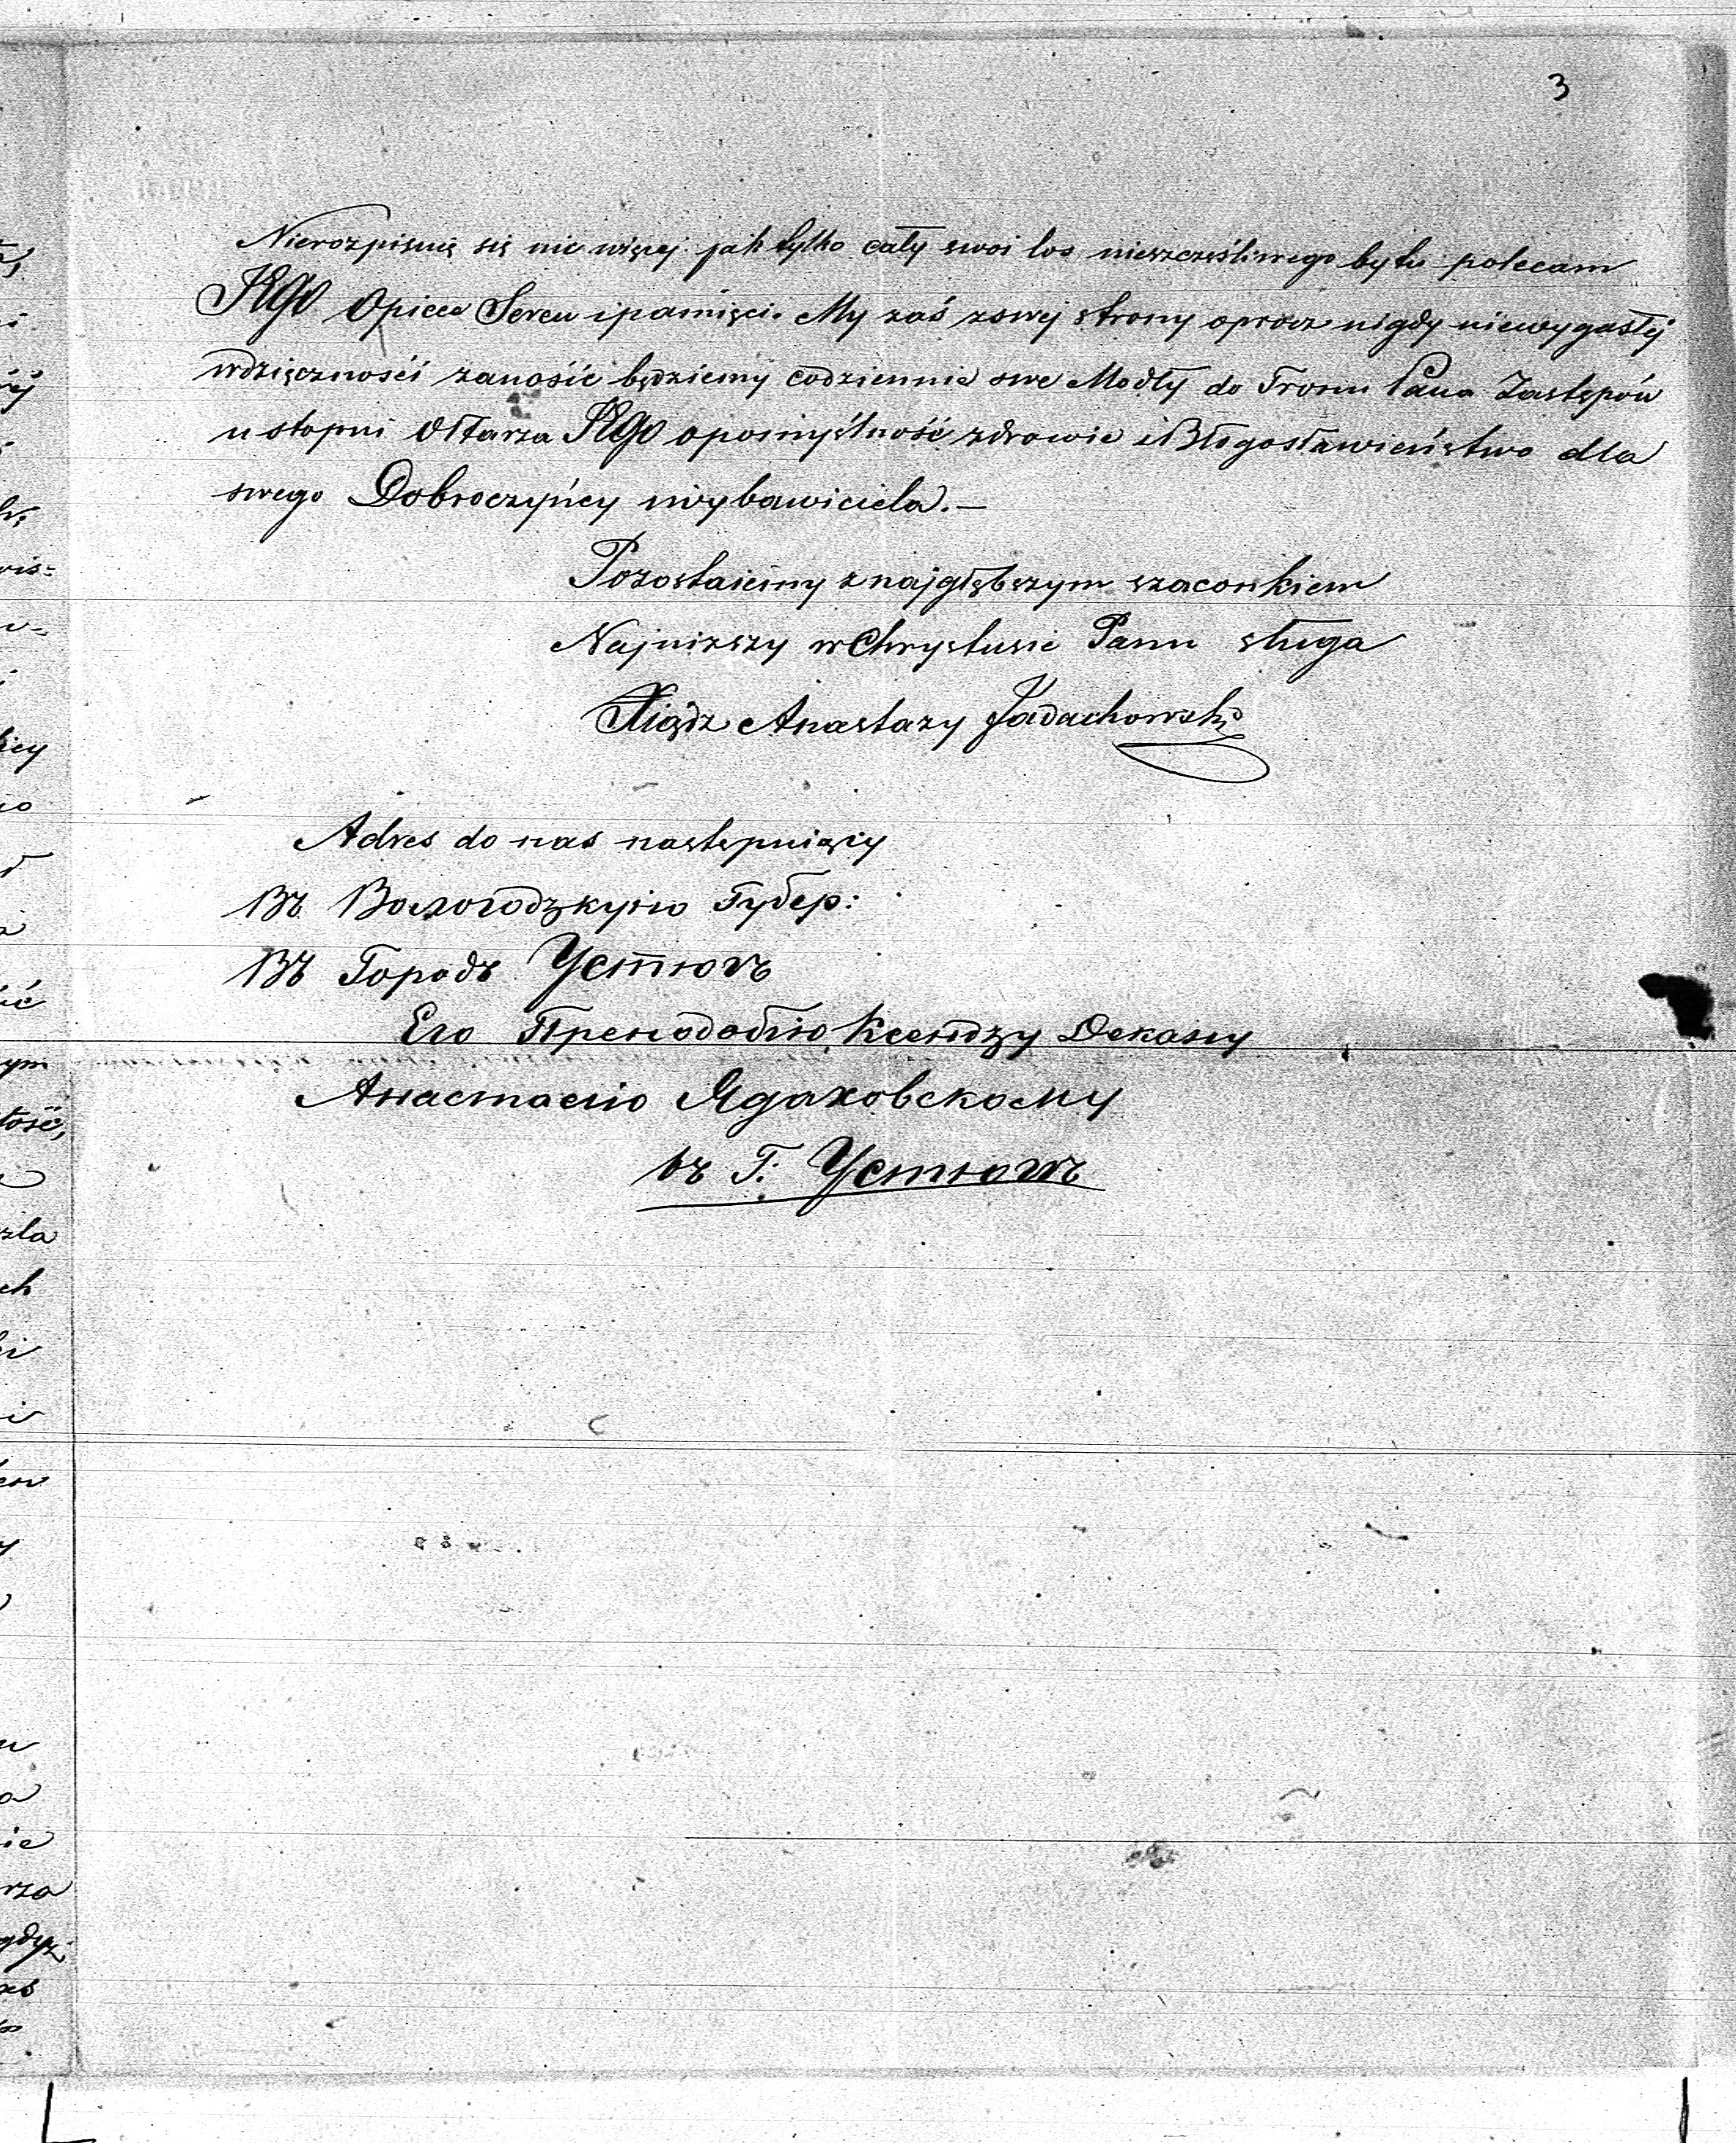 3
Nierozpisuię się nic więcej jak tylko cały swoi los nieszczęśliwego bytu polecam
Opiece Sercu i pamięci. My zaś zswej strony oprocz nigdy niewygasłej
wdzięczności zanosić będziemy codziennie swe Modły do Tronu Pana Zastępów
u stopni Ołtarza opomyślność zdrowie i Błogosławieństwo dla
swego Dobroczyńcy iwybawiciela.—
Pozostaiemy z najgłębszym szacunkiem
Najniższy w Chrystusie Panu sługa
Xiądz Anastazy Jadachowski
Adres do nas następuiący
Въ Вологодзкую Губер:
Въ Городъ Устюгъ
Его Преподобію Ксендзу Декану
Анастасію Ядаховскому
въ Г. Устюгъ